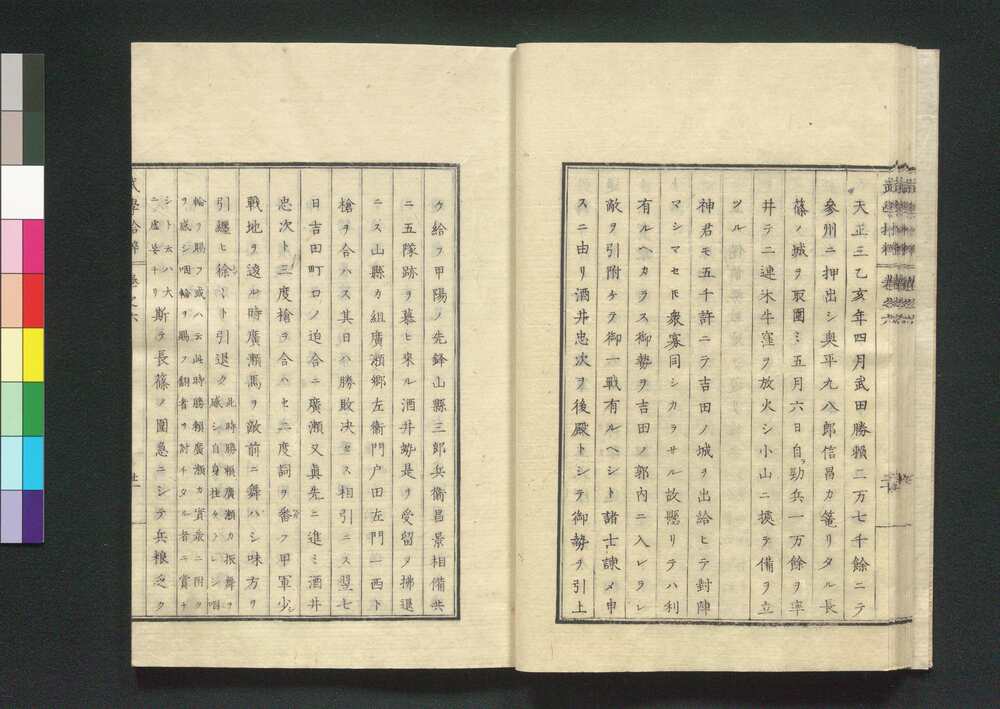 天正三乙亥年四月武田勝頼二万七千餘ニテ
參州ニ押出シ奥平九八郎信昌カ篭リタル長
篠ノ城ヲ取圍ミ五月六日自ラ勁兵一万餘ヲ率
井テ二連木牛窪ヲ放火シ小山ニ據テ備ヲ立
ツル
神君モ五千許ニテ吉田ノ城ヲ出給ヒテ對陣
マシマセ𪜈衆寡同シカラサル故懸リテハ利
有ルヘカラス御勢ヲ吉田ノ郭内ニ入レラレ
敵ヲ引附ケテ御一戦有ルヘシト諸士諫メ申
スニ由リ酒井忠次ヲ後殿トシテ御勢ヲ引上
ケ給フ甲陽ノ先鋒山縣三郎兵衞昌景相備共
ニ五隊跡ヲ慕ヒ來ル酒井勢是ヲ受留メ拂退
ニス山縣カ組廣瀬郷左衞門户田左門一西ト
槍ヲ合ハス其日ハ勝敗决セス相引ニス翌七
日吉田町口ノ迫合ニ廣瀬又眞先ニ進ミ酒井
忠次ト三度槍ヲ合ハセ二度詞ヲ番フ甲軍少シ
戰地ヲ遠ル時廣瀬馬ヲ敵前ニ舞ハシ味方ヲ
引纏ヒ徐々ト引退ク
此時勝頼廣瀬カ振舞ヲ
感シ自身挂タル
輪ヲ賜フ或ハ云此時勝頼廣瀬カ
ヲ感シ咽輪ヲ賜フ
シト云ハ大
ニ虚妄ナリ
斯テ長篠ノ圍急ニシテ兵粮乏ク
武學拾粹
卷之六
廿一